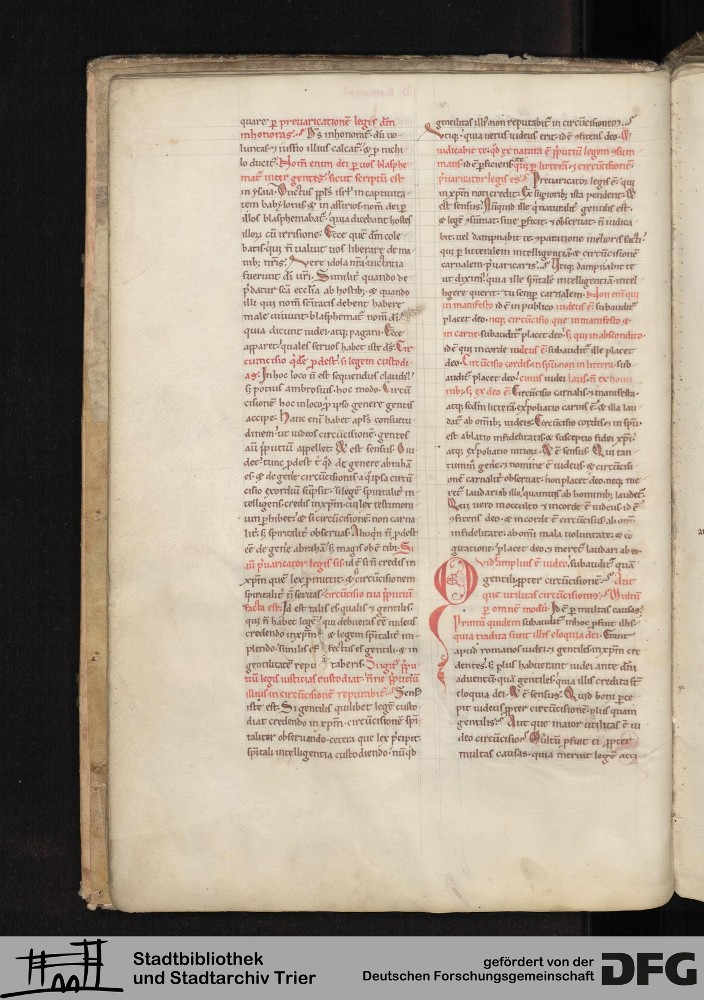 quare p prevaricatione legis dm
inhonoras. Ds inhonorat dn uo
luntas & iussio illius calcat & p nichi
lo ducit. Nom enim dei p vos blasphe
mat inter gentes. sicut scriptu est
in ysaia. Ductus ppls isrl in captiuita
tem babylonis & in assirios nom dei p
illos blasphemabat. quia dicebant hostes
illor cu irrisione. Ecce que dm cole
batis qui n ualuit uos liberare de ma
nib nris. Vere idola nra uictricia
fuerunt di uri. Similit quando de
pdatur sca ecclia ab hostib & quando
illi qui nom scitatis debent habere
male uiuunt. blasphemat nom di
quia dicunt iudei atq pagani. Ecce
apparet quales seruos habet iste ds. Cir
cumcisio qde pdest si legem custodi
as. In hoc loco n est sequendus claudi
s potius ambrosius hoc modo. Circu
cisione hoc in loco p ipso genere gentis
accipe. Hanc eni habet apls consuetu
dinem ut iudeos circucisione. gentes
au pputiu appellet. & est sensus. O iu
dee tunc pdest t qd de genere abraha
es & de genere circucisionis a q ipsa circu
cisio exordiu supsit. si lege spiritalit in
telligens credis in xpm cui lex testimoni
um phibet. & si circucisione non carna
lit s spiritalit obseruas. Alioqn n pdest
ee de genere abraha s magis obe tibi. Si
au puaricator legis sis. id e si n credis in
xpm que lex pmittit & circucisionem
spiritalit n seruas. circucisio tua pputiu
facta est. Id est talis es qualis & gentilis
qui n habet lege. qui debueras ee iudeus
credendo in xpm & legem spiritalit im
plendo. similis effectus es gentili & in
gentilitate reputaberis. Si igit ppu
tiu legis iusticias custodiat. nne pputiu
illius in circucisione reputabit. Sens
iste est. Si gentilis quilibet lege custo
diat credendo in xpm. circucisione spi
ritalit obseruando. cetera que lex pcipit
spitali intelligentia custodiendo. nuqd
gentilitas illi non reputabit in circucisionem.
Utiq quia verus iudeus erit id e fitens deo. &
iudicabit te qd ex natura e pputiu legem sum
mans id e pficiens qui p littera & circucisione
puaricator legis es. Prevaricator legis e qui
in xpm non credit. Ex superiorib ista pendent. &
est sensus. Aliquid ille q naturalit gentilis est
& lege sumat siue pficit & obseruat n iudica
bit uel dampnabit te
qui p litteralem intelligentia & circucisione
carnalem puaricaris. Utiq dampnabit te
ut dixim quia ille spitale intelligentia intel
ligere querit. tu semp carnalem. Non eni qui
in manifesto id e in publico iudeus e subaudit
placet deo. neq circucisio que in manifesto &
in carne subaudit placet deo. s qui in abscondito
id e qui in corde iudeus e subaudit ille placet
deo. Circucisio cordis in spu non in littera. sub
audit placet deo. cuius iudei laus n ex homi
nib s ex deo e. Circucisio carnalis & manifesta
atq scdm littera expoliatio carnis e. & illa lau
dat ab omib iudeis. Circucisio cordis in spu
est ablatio infidelitatis & susceptio fidei xpi
atq expoliatio uitior. & e sensus. Qui tan
tummo genere & nomine e iudeus & circucisi
one carnalit obseruat. non placet deo. neq me
ret laudari ab illo quamuis ab hominib laudet.
Qui uero in occulto & in corde e iudeus id e
fitens deo & in corde e circucisus ab omi
infidelitate. ab omi mala uoluntate. & co
gitatione. placet deo & meret laudari ab eo.
Quid amplius e iudeo. subaudit qua
gentili ppter circucisione. Aut
que utilitas circucisionis. Multu
p omne modu. Id e p multas causas.
Primu quidem subaudit in hoc pfuit illis
quia tradita sunt illis eloquia dei. Erant
apud romanos iudei & gentiles in xpm cre
dentes. s plus habuerant iudei ante dni
aduentu qua gentiles. quia illis credita st
eloquia dei. & e sensus. Quid boni pce
pit iudeus ppter circucisione plus quam
gentilis. Aut que maior utilitas e iu
deo circucisio. Multu pfuit ei ppter
multas causas. quia meruit lege acci
Stadtbibliothek
und Stadtarchiv Trier
gefördert von der
Deutschen Forschungsgemeinschaft
DFG